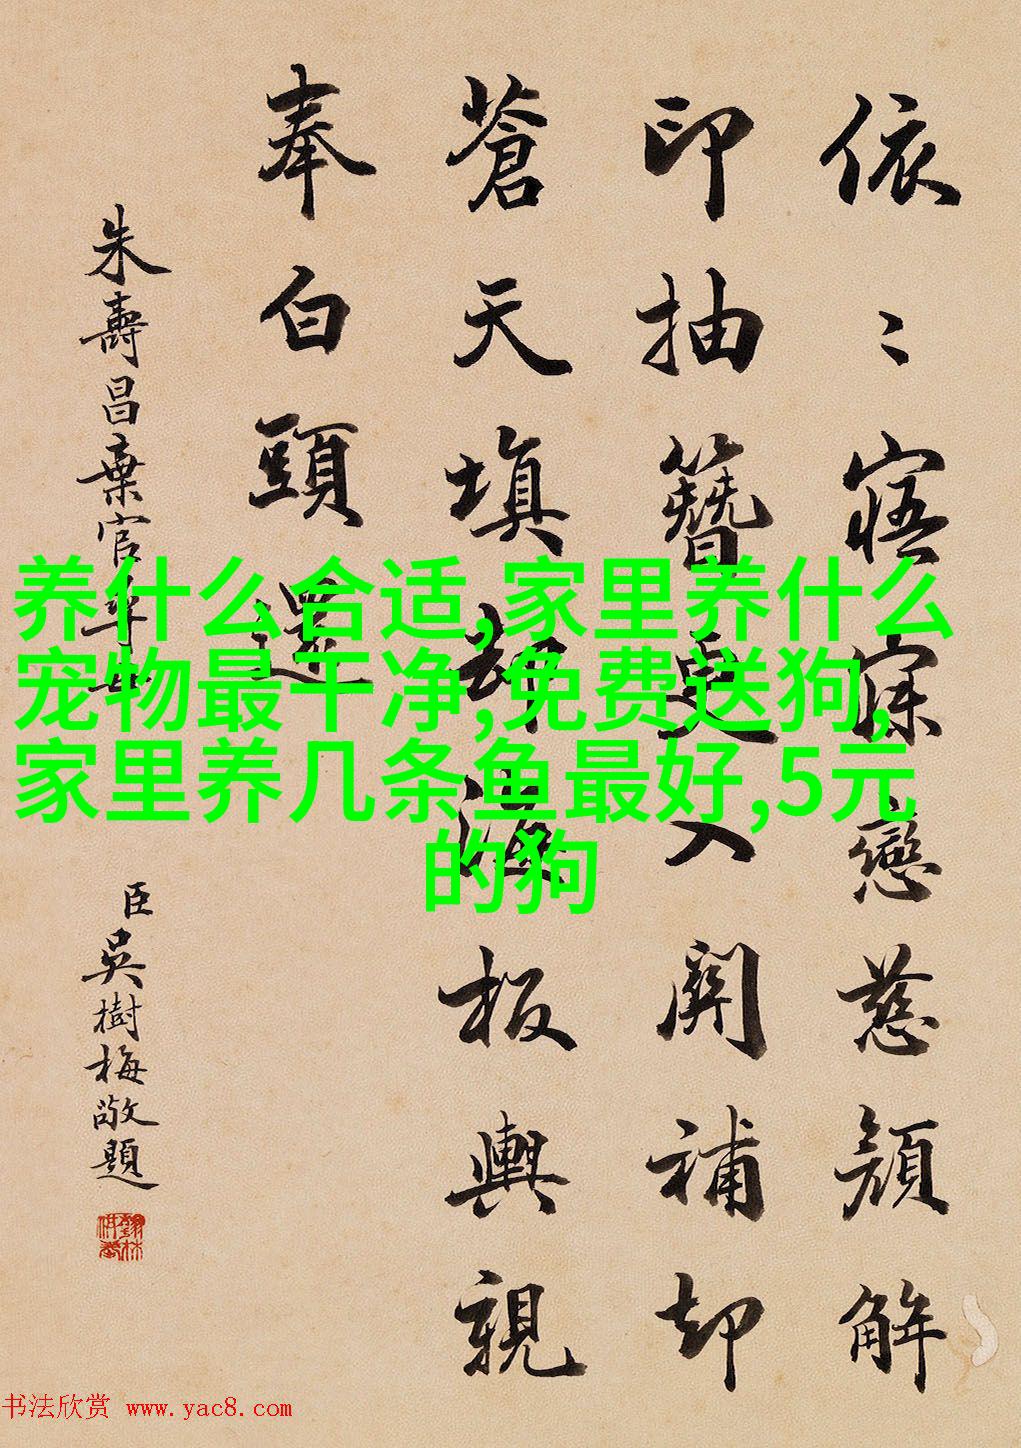 依〻寤寐戀慈顏解
印抽簪更入關補却
蒼天填却海板輿親
奉白頭還
朱壽昌棄官尋母
臣吳樹梅敬題
养什么合适,家里养什么
宠物最干净,免费送狗,
家里养几条鱼最好,5元
的狗
书法欣赏 www.yac8.com